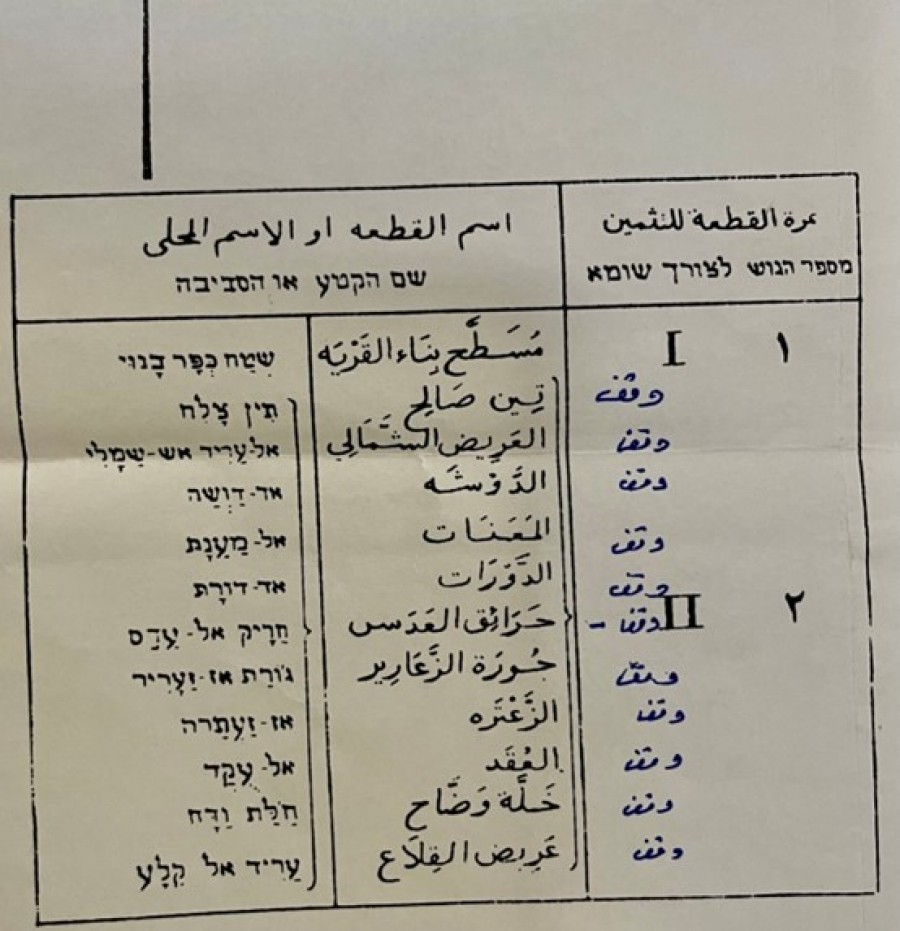 نمرة القطعة للتثمين اسم القطعه او الاسم المحلى
מספר הגוש לצורך שומא שם הקטע או הסביבה
١ I مُسَطَّح بِنَاء القَرْيَه שְׁטַח כְּפָר בָּנוּי
وقف تِين صَالِح תִין צָלִח
وقف العَرِيض الشَّمَالِي אל-עַרִיד אש-שַמָלִי
وقف الدَّوْشَه אד-דַוְשַה
وقف المَعَنَات אל-מַעַנָת
وقف الدَّوْرَات אד-דוֹרָת
٢ II وقف - حَرَائِق العَدَس חַרָיִק אל-עַדַס
وقف جُورَة الزَّعَارِير ג׳וֹרַת אז-זַעָרִיר
وقف الزَّعْتَرَه אז-זַעְתַרה
وقف العُقَد אל-עֻקַד
وقف خَلَّة وَضَّاح חַ׳לַּת וַדָּח
وقف عَرِيض القِلَاع עַרִיד אל קִלָע